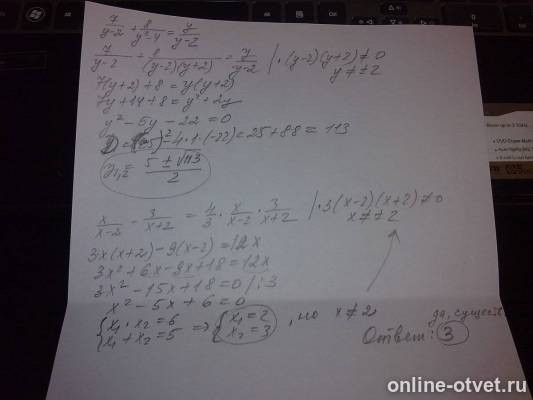 7/(y-2) + 8/(y²-4) = y/(y-2)
7/(y-2) + 8/((y-2)(y+2)) = y/(y-2) | · (y-2)(y+2) ≠ 0
y ≠ ±2
7(y+2)+8 = y(y+2)
7y+14+8 = y²+2y
y² - 5y - 22 = 0
D = (-5)² - 4·1·(-22) = 25+88 = 113
y₁,₂ = (5 ± √113)/2
x/(x-2) - 3/(x+2) = 4/3 · x/(x-2) · 3/(x+2) | · 3(x-2)(x+2) ≠ 0
x ≠ ±2
3x(x+2) - 9(x-2) = 12x
3x² + 6x - 9x + 18 = 12x
3x² - 15x + 18 = 0 / : 3
x² - 5x + 6 = 0
{ x₁ · x₂ = 6
x₁ + x₂ = 5 => { x₁ = 2
x₂ = 3 , но x ≠ 2
Ответ: 3
online-otvet.ru